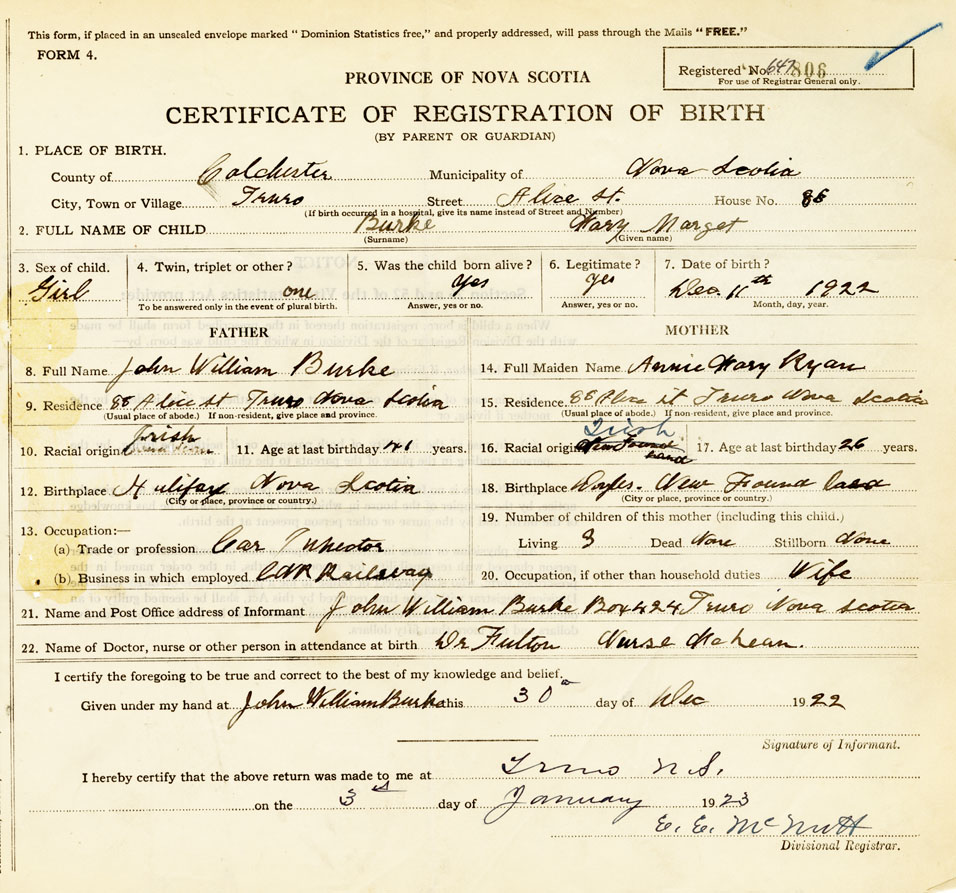 This form, if placed in an unsealed envelope marked "Dominion Statistics free," and properly addressed, will pass through the Mails "FREE."
FORM 4.
Registered No. 647 806
For use of Registrar General only.
PROVINCE OF NOVA SCOTIA
CERTIFICATE OF REGISTRATION OF BIRTH
(BY PARENT OR GUARDIAN)
1. PLACE OF BIRTH.
County of Colchester Municipality of Nova Scotia
City, Town or Village Truro Street Alice St. House No. 88
(If birth occurred in a hospital, give its name instead of Street and Number)
2. FULL NAME OF CHILD Burke Mary Marget
(Surname) (Given name)
3. Sex of child. 4. Twin, triplet or other? 5. Was the child born alive? 6. Legitimate? 7. Date of birth?
Girl one yes yes Dec. 11th 1922
To be answered only in the event of plural birth. Answer, yes or no. Answer, yes or no. Month, day, year.
FATHER MOTHER
8. Full Name John William Burke 14. Full Maiden Name Annie Mary Ryan
9. Residence 88 Alice st Truro Nova Scotia 15. Residence 88 Alice st Truro Nova Scotia
(Usual place of abode.) If non-resident, give place and province. (Usual place of abode.) If non-resident, give place and province.
10. Racial origin Irish 11. Age at last birthday 41 years. 16. Racial origin Irish New Found land 17. Age at last birthday 26 years.
12. Birthplace Halifax Nova Scotia 18. Birthplace New Found land
(City or place, province or country.) (City or place, province or country.)
13. Occupation:— 19. Number of children of this mother (including this child.)
(a) Trade or profession Car Inspector Living 3 Dead None Stillborn None
(b) Business in which employed CNR Railway 20. Occupation, if other than household duties Wife
21. Name and Post Office address of Informant John William Burke Box 424 Truro Nova Scotia
22. Name of Doctor, nurse or other person in attendance at birth Dr Fulton Nurse McLean.
I certify the foregoing to be true and correct to the best of my knowledge and belief.
Given under my hand at John William Burke this 30 day of Dec 1922
Signature of Informant.
I hereby certify that the above return was made to me at Truro N.S.
on the 3rd day of January 1923
E. E. McNutt
Divisional Registrar.